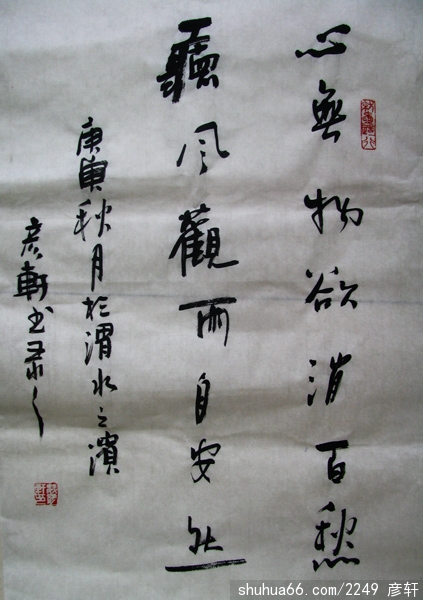 心無物欲消百愁
聽風觀雨自安然
庚寅秋月於渭水之濱
彦軒书
shuhua66.com/2249 彦轩